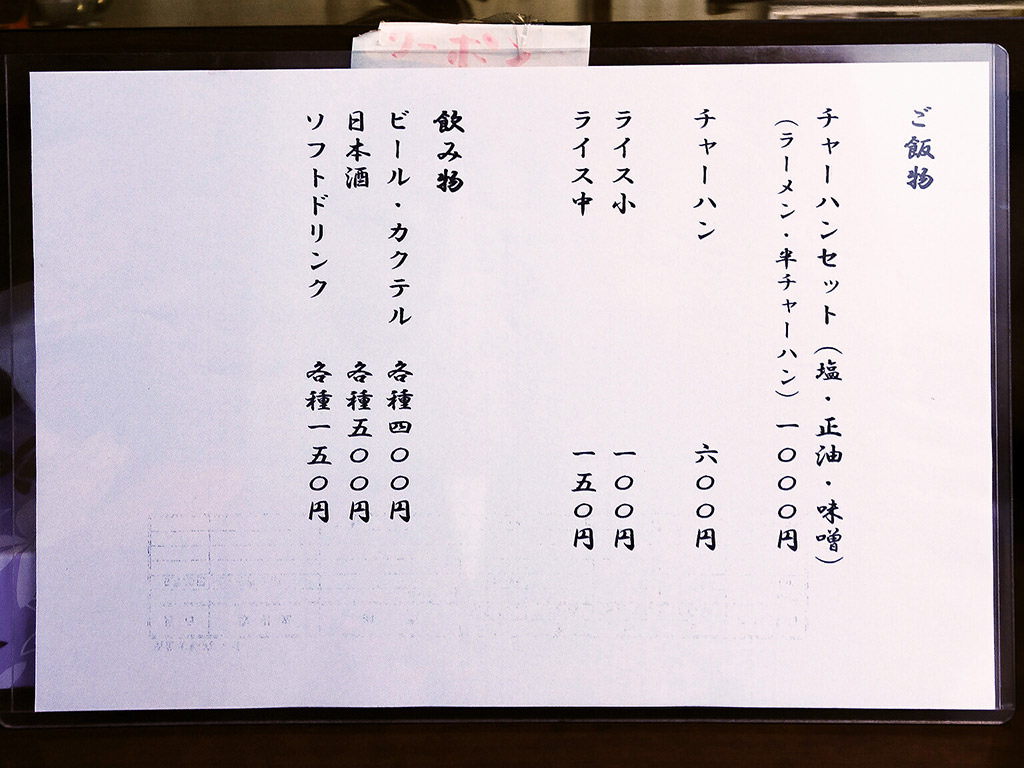 ご飯物
チャーハンセット（塩・正油・味噌）
（ラーメン・半チャーハン）一〇〇〇円
チャーハン 六〇〇円
ライス小 一〇〇円
ライス中 一五〇円
飲み物
ビール・カクテル 各種四〇〇円
日本酒 各種五〇〇円
ソフトドリンク 各種一五〇円